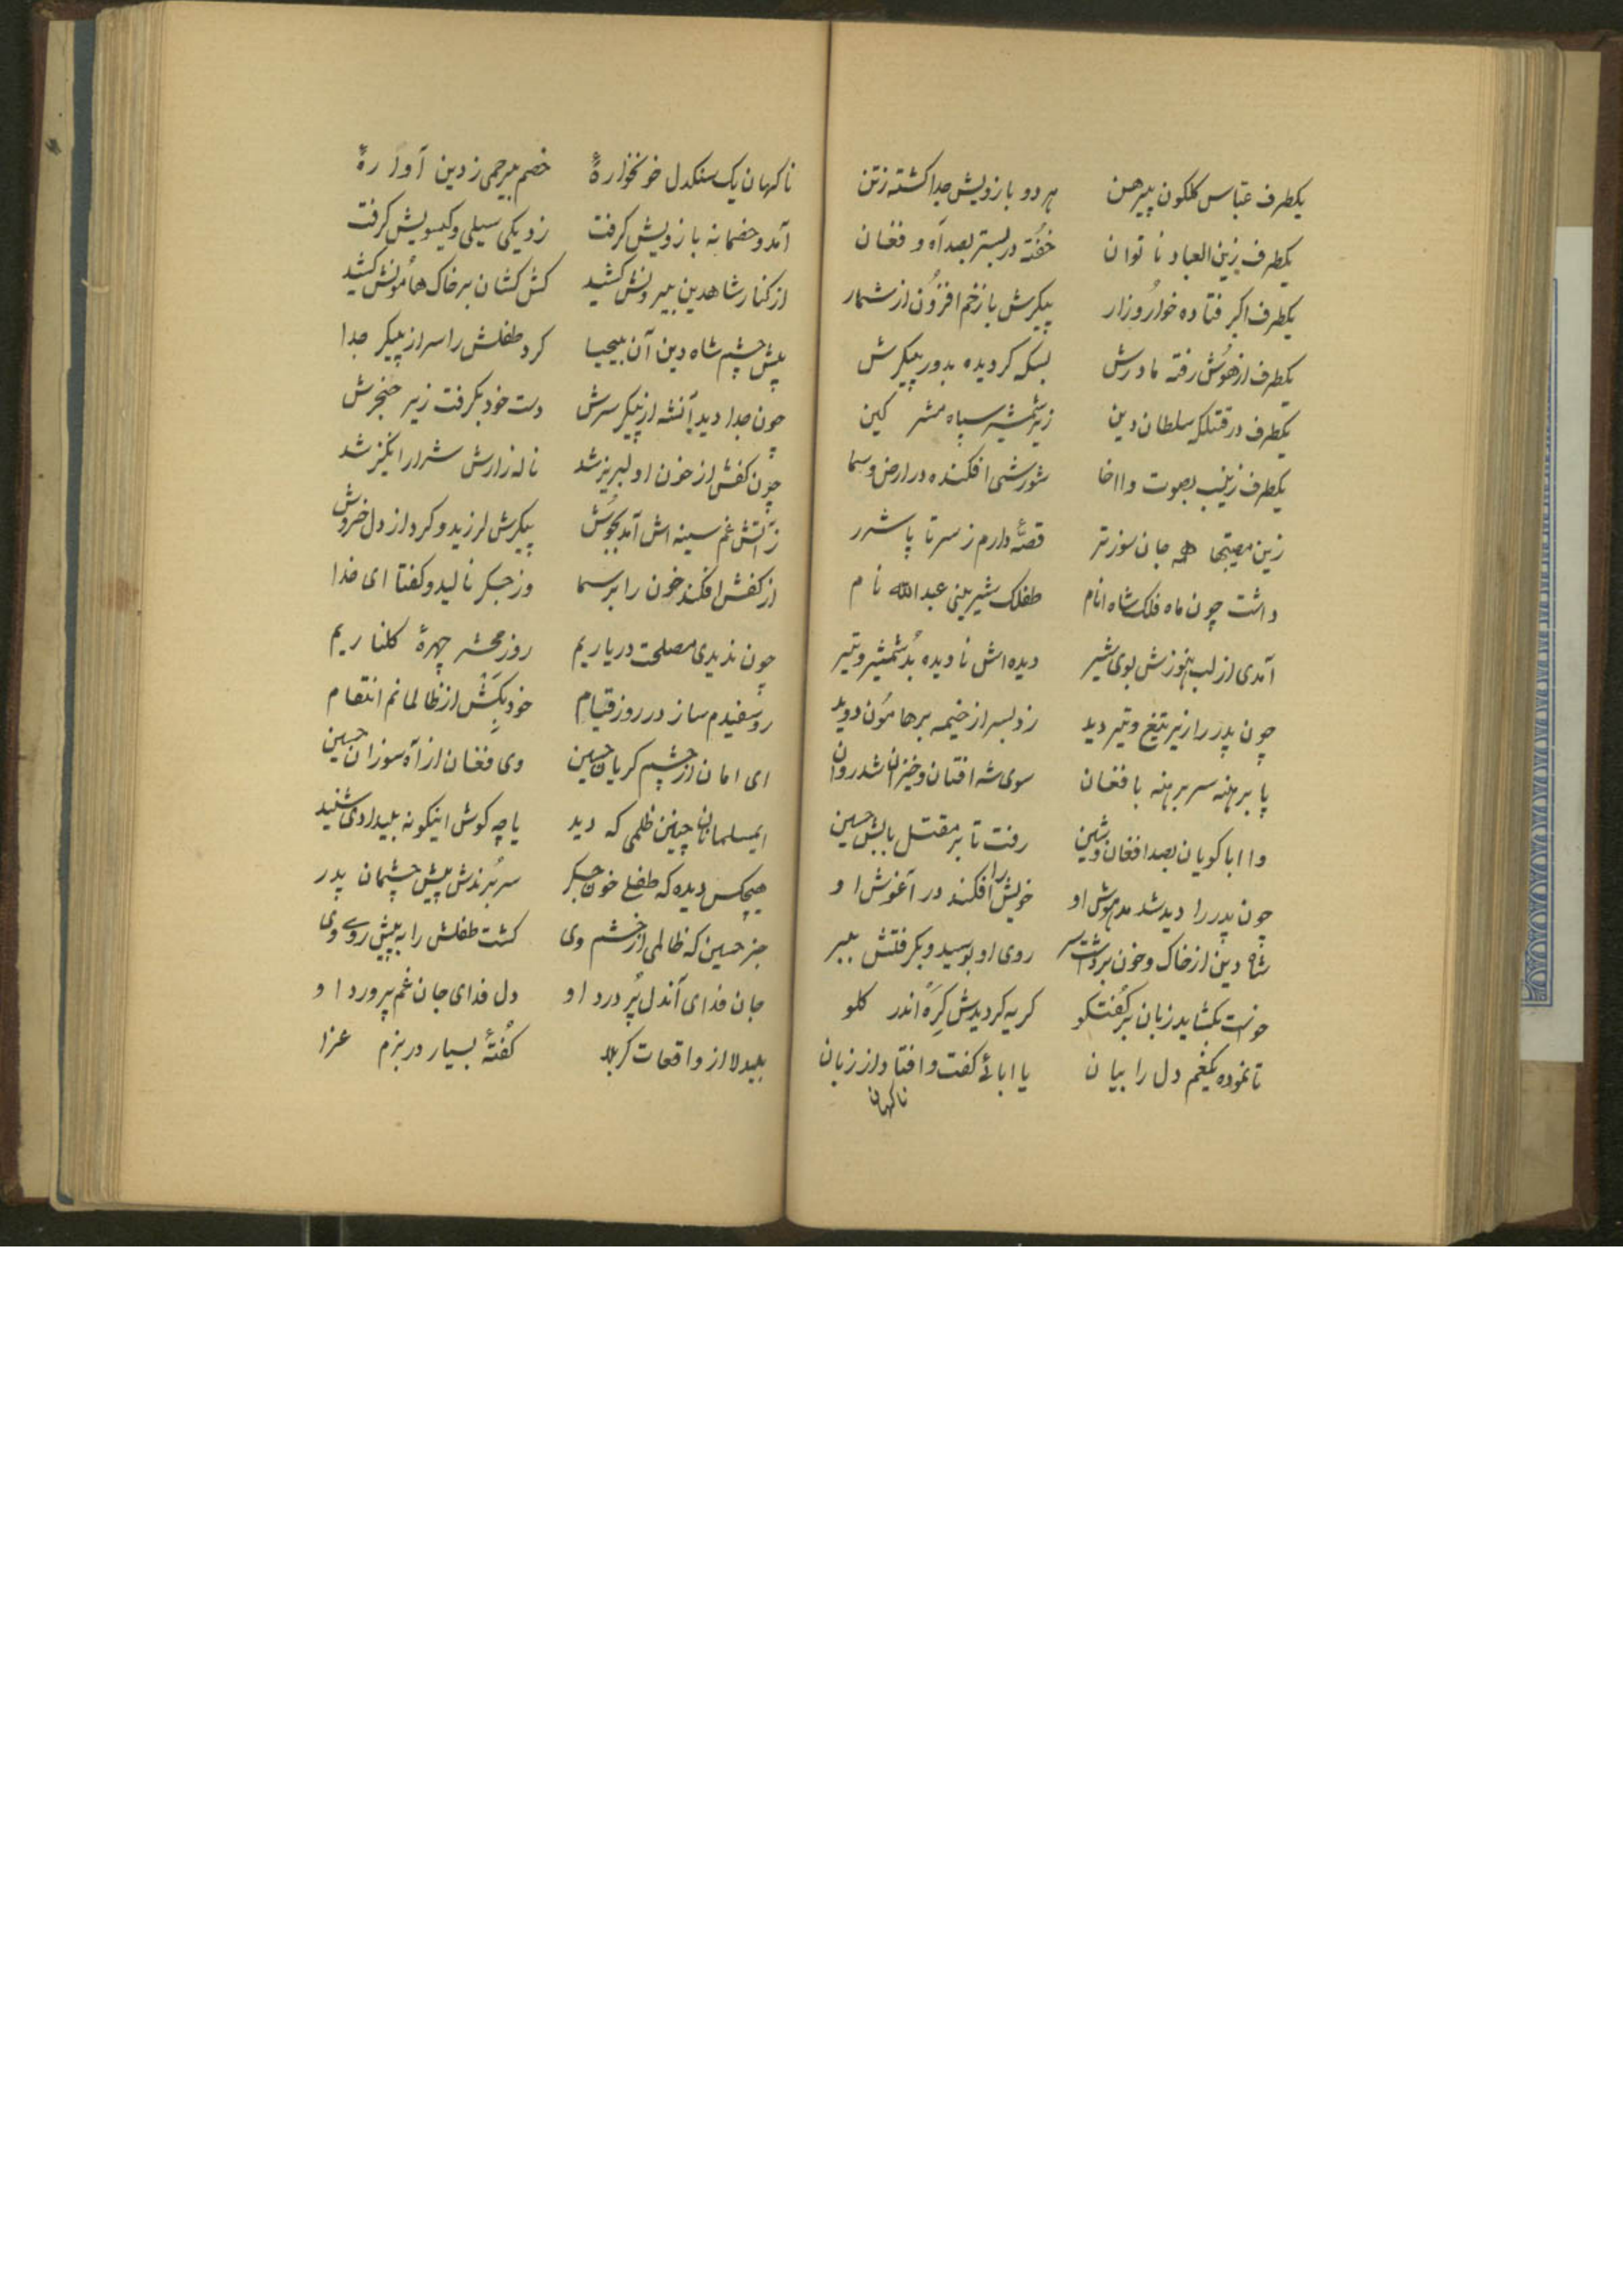 یکطرف عباس کلکون پیرهن هر دو بازویش جدا کشته ز تن
یکطرف زین العباد ناتوان خفته در بستر بصد آه و فغان
یکطرف اکبر فتاده خوار و زار پیکرش با زخم افزون از شمار
یکطرف از هوش رفته مادرش بسکه کردیده بدور پیکرش
یکطرف در قتلکه سلطان دین زیر شمشیر سپاه مشر کین
یکطرف زینب بصوت وااخا شورشی افکنده در ارض و سما
زین مصیبتها همه جان سوزتر قصهٔ دارم ز سر تا پا شرر
داشت چون ماه فلک شاه انام طفلک شیرینی عبدالله نام
آمدی از لب هنوزش بوی شیر دیده اش نادیده بد شمشیر و تیر
چون پدر را زیر تیغ و تیر دید زد بسر از خیمه بر هامون دوید
پا برهنه سر برهنه با فغان سوی شه افتان و خیزان شد روان
وا ابا کویان بصد افغان و شین رفت تا بر مقتل بابش حسین
چون پدر را دید شد مدهوش او خویش را افکند در آغوش او
شاه دین از خاک و خون برداشت سر روی او بوسید و بکرفتش ببر
خواست بکشاید زبان بر کفتکو کریه کردیدش کره اندر کلو
تا نموده یکغم دل را بیان یا ابائی کفت و افتاد از زبان
ناکهان
ناکهان یک سنکدل خونخوارهٔ خصم بیرحمی ز دین آوارهٔ
آمد و خصمانه بازویش کرفت زد یکی سیلی و کیسویش کرفت
از کنار شاهدین بیرونش کشید کش کشان بر خاک هامونش کشید
پیش چشم شاه دین آن بیحیا کرد طفلش را سر از پیکر جدا
چون جدا دید آنشه از پیکر سرش دست خود بکرفت زیر حنجرش
چون کفش از خون او لبریز شد ناله زارش شرار انکیز شد
ز آتش غم سینه اش آمد بجوش پیکرش لرزید و کرد از دل خروش
از کفش افکند خون را بر سما وز جکر نالید و کفتا ای خدا
چون ندیدی مصلحت در یاریم روز محشر چهرهٔ کلناریم
رو سفیدم ساز در روز قیام خود بکش از ظالمانم انتقام
ای امان از چشم کریان حسین وی فغان از آه سوزان حسین
ایمسلمانان چنین ظلمی که دید یا چه کوش اینکونه بیدادی شنید
هیچکس دیده که طفلی خون جکر سر برندش پیش چشمان پدر
جز حسین که ظالمی از خشم وی کشت طفلش را به پیش روی وی
جان فدای آندل پر درد او دل فدای جان غم پرورد او
بیدلا از واقعات کربلا کفتهٔ بسیار در بزم عزا